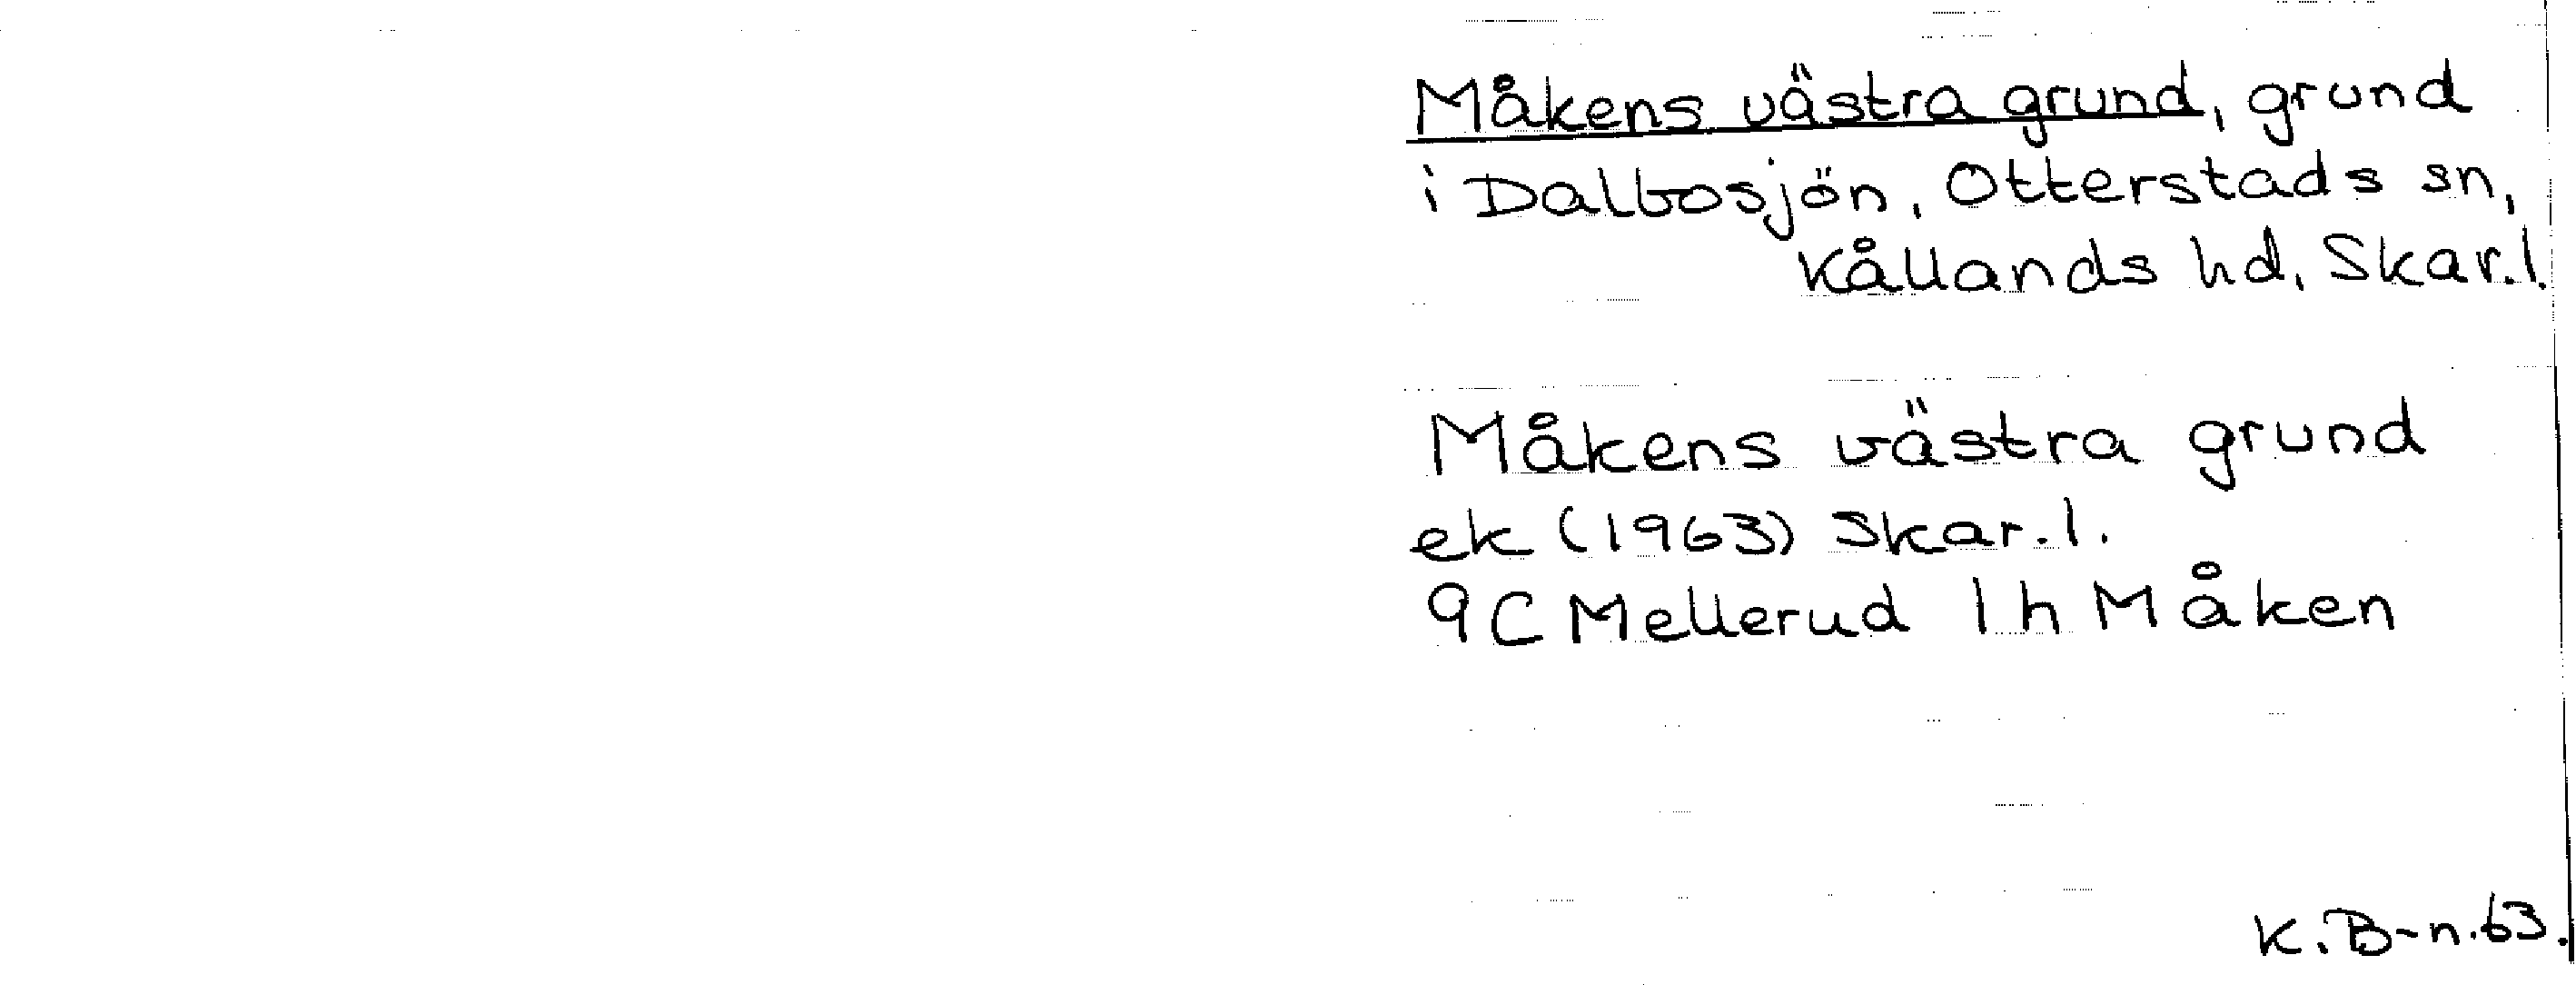 Måkens västra grund, grund
i Dalbosjön, Otterstads sn,
Kållands hd, Skar.l.
Måkens västra grund
ek (1963) Skar.l.
9C Mellerud 1h Måken
K.B-n.63.